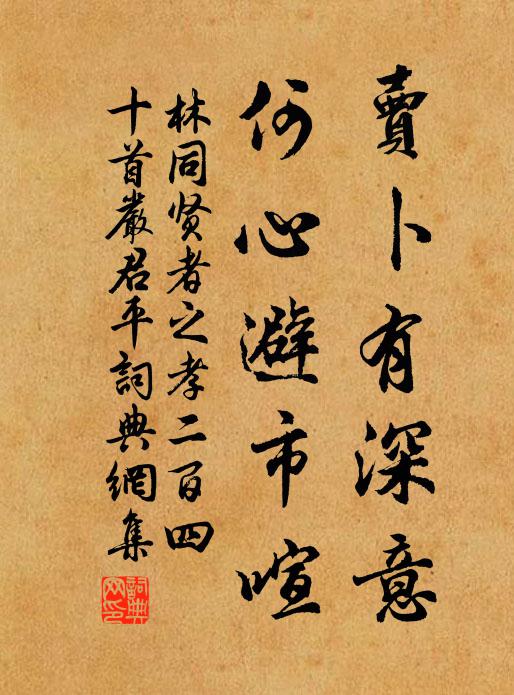 賣卜有深意
何心避市喧
林同贤者之孝二百四
十首嚴君平詞典網集
詞典网印